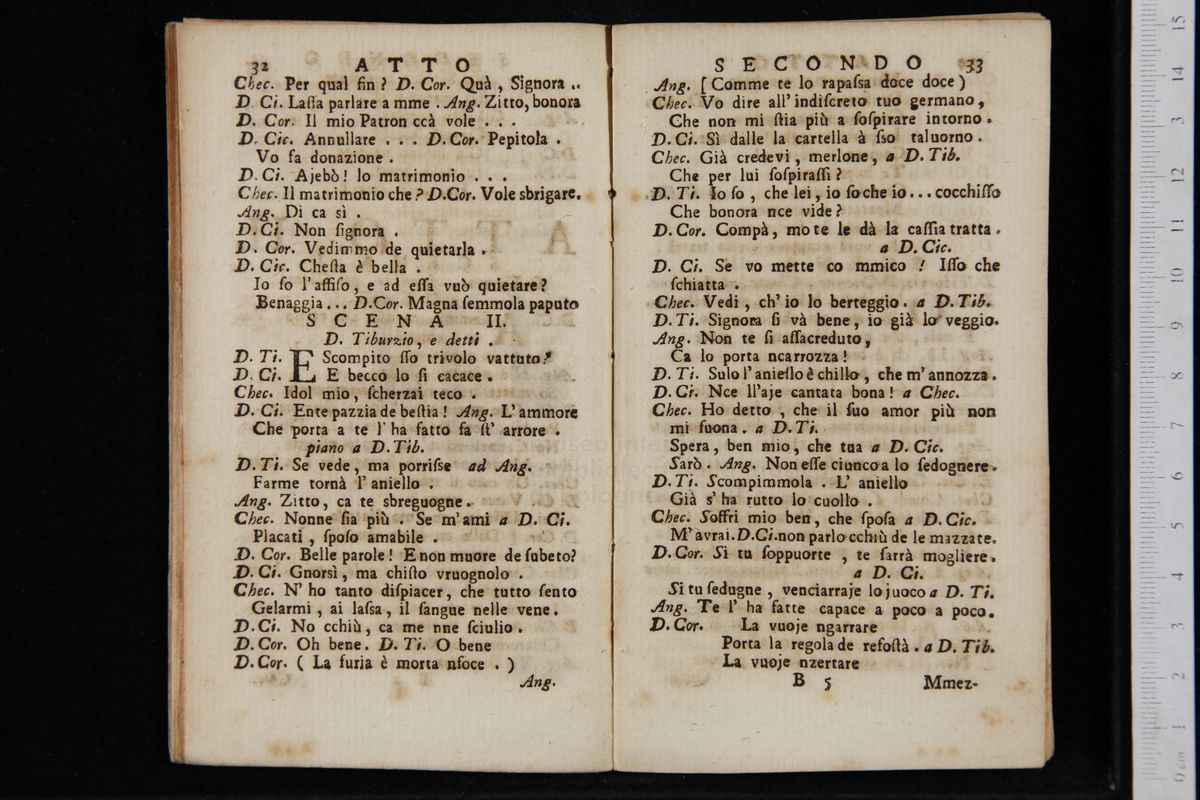 32 ATTO
Chec. Per qual fin? D. Cor. Quà, Signora ..
D. Ci. Laſſa parlare a mme. Ang. Zitto, bonora
D. Cor. Il mio Patron ccà vole . . .
D. Cic. Annullare . . . D. Cor. Pepitola .
Vo fa donazione .
D. Ci. Ajebò! lo matrimonio . . .
Chec. Il matrimonio che? D.Cor. Vole sbrigare.
Ang. Di ca sì .
D. Ci. Non ſignora .
D. Cor. Vedimmo de quietarla .
D. Cic. Cheſta è bella .
Io ſo l'affiſo, e ad eſſa vuò quietare?
Benaggia... D.Cor. Magna ſemmola paputo
SCENA II.
D. Tiburzio, e detti .
D. Ti. E Scompito ſſo trivolo vattuto?
D. Ci. E becco lo ſi cacace .
Chec. Idol mio, ſcherzai teco .
D. Ci. Ente pazzia de beſtia! Ang. L'ammore
Che porta a te l'ha fatto fa ſt' arrore .
piano a D. Tib.
D. Ti. Se vede, ma porriſse ad Ang.
Farme tornà l'aniello .
Ang. Zitto, ca te sbreguogne.
Chec. Nonne ſia più . Se m'ami a D. Ci.
Placati, ſpoſo amabile .
D. Cor. Belle parole! E non muore de ſubeto?
D. Ci. Gnorsì, ma chiſto vruognolo .
Chec. N' ho tanto diſpiacer, che tutto ſento
Gelarmi, ai laſsa, il ſangue nelle vene.
D. Ci. No cchiù, ca me nne ſciulio .
D. Cor. Oh bene. D. Ti. O bene
D. Cor. ( La furia è morta nſoce . )
Ang.
SECONDO 33
Ang. [ Comme te lo rapaſsa doce doce )
Chec. Vo dire all'indiſcreto tuo germano,
Che non mi ſtia più a ſoſpirare intorno .
D. Ci. Sì dalle la cartella à ſso taluorno .
Chec. Già credevi, merlone, a D. Tib.
Che per lui ſoſpiraſſi?
D. Ti. Io ſo, che lei, io ſo che io... cocchiſſo
Che bonora nce vide?
D. Cor. Compà, mo te le dà la caſſia tratta .
a D. Cic.
D. Ci. Se vo mette co mmico ! Iſſo che
ſchiatta .
Chec. Vedi, ch'io lo berteggio. a D. Tib.
D. Ti. Signora ſi và bene, io già lo veggio.
Ang. Non te ſi aſſacreduto,
Ca lo porta ncarrozza!
D. Ti. Sulo l'anieſlo è chillo, che m'annozza.
D. Ci. Nce ll'aje cantata bona! a Chec.
Chec. Ho detto, che il ſuo amor più non
mi ſuona. a D. Ti.
Spera, ben mio, che tua a D. Cic.
Sarò . Ang. Non eſſe ciunco a lo ſedognere.
D. Ti. Scompimmola . L' aniello
Già s'ha rutto lo cuollo .
Chec. Soffri mio ben, che ſpoſa a D. Cic.
M'avrai. D.Ci. non parlo cchiù de le mazzate.
D. Cor. Si tu ſoppuorte, te ſarrà mogliere.
a D. Ci.
Si tu ſedugne, venciarraje lo juoco a D. Ti.
Ang. Te l' ha fatte capace a poco a poco.
D. Cor. La vuoje ngarrare
Porta la regola de refoſtà . a D. Tib.
La vuoje nzertare
B 5 Mmez-